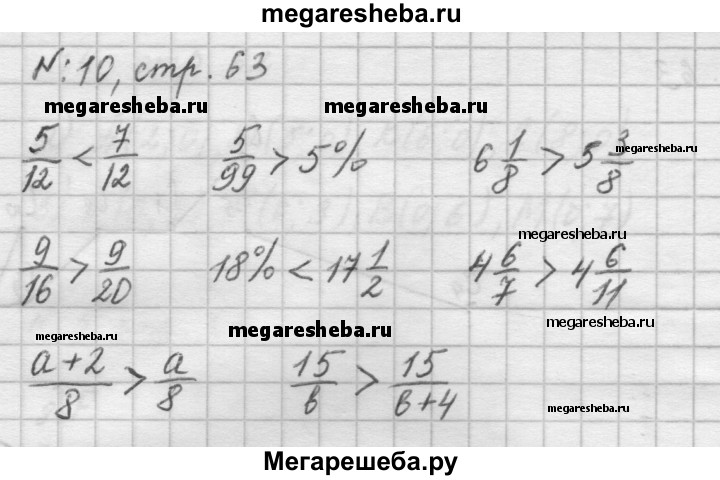 megaresheba.ru
№:10, стр. 63
megaresheba.ru megaresheba.ru
5/12 < 7/12 5/99 > 5% 6 1/8 > 5 3/8
megaresheba.ru
megaresheba.ru
9/16 > 9/20 18% < 17 1/2 4 6/7 > 4 6/11
megaresheba.ru megaresheba.ru megaresheba.ru
a+2/8 > a/8 15/в > 15/в+4
megaresheba.ru
Мегарешеба.ру